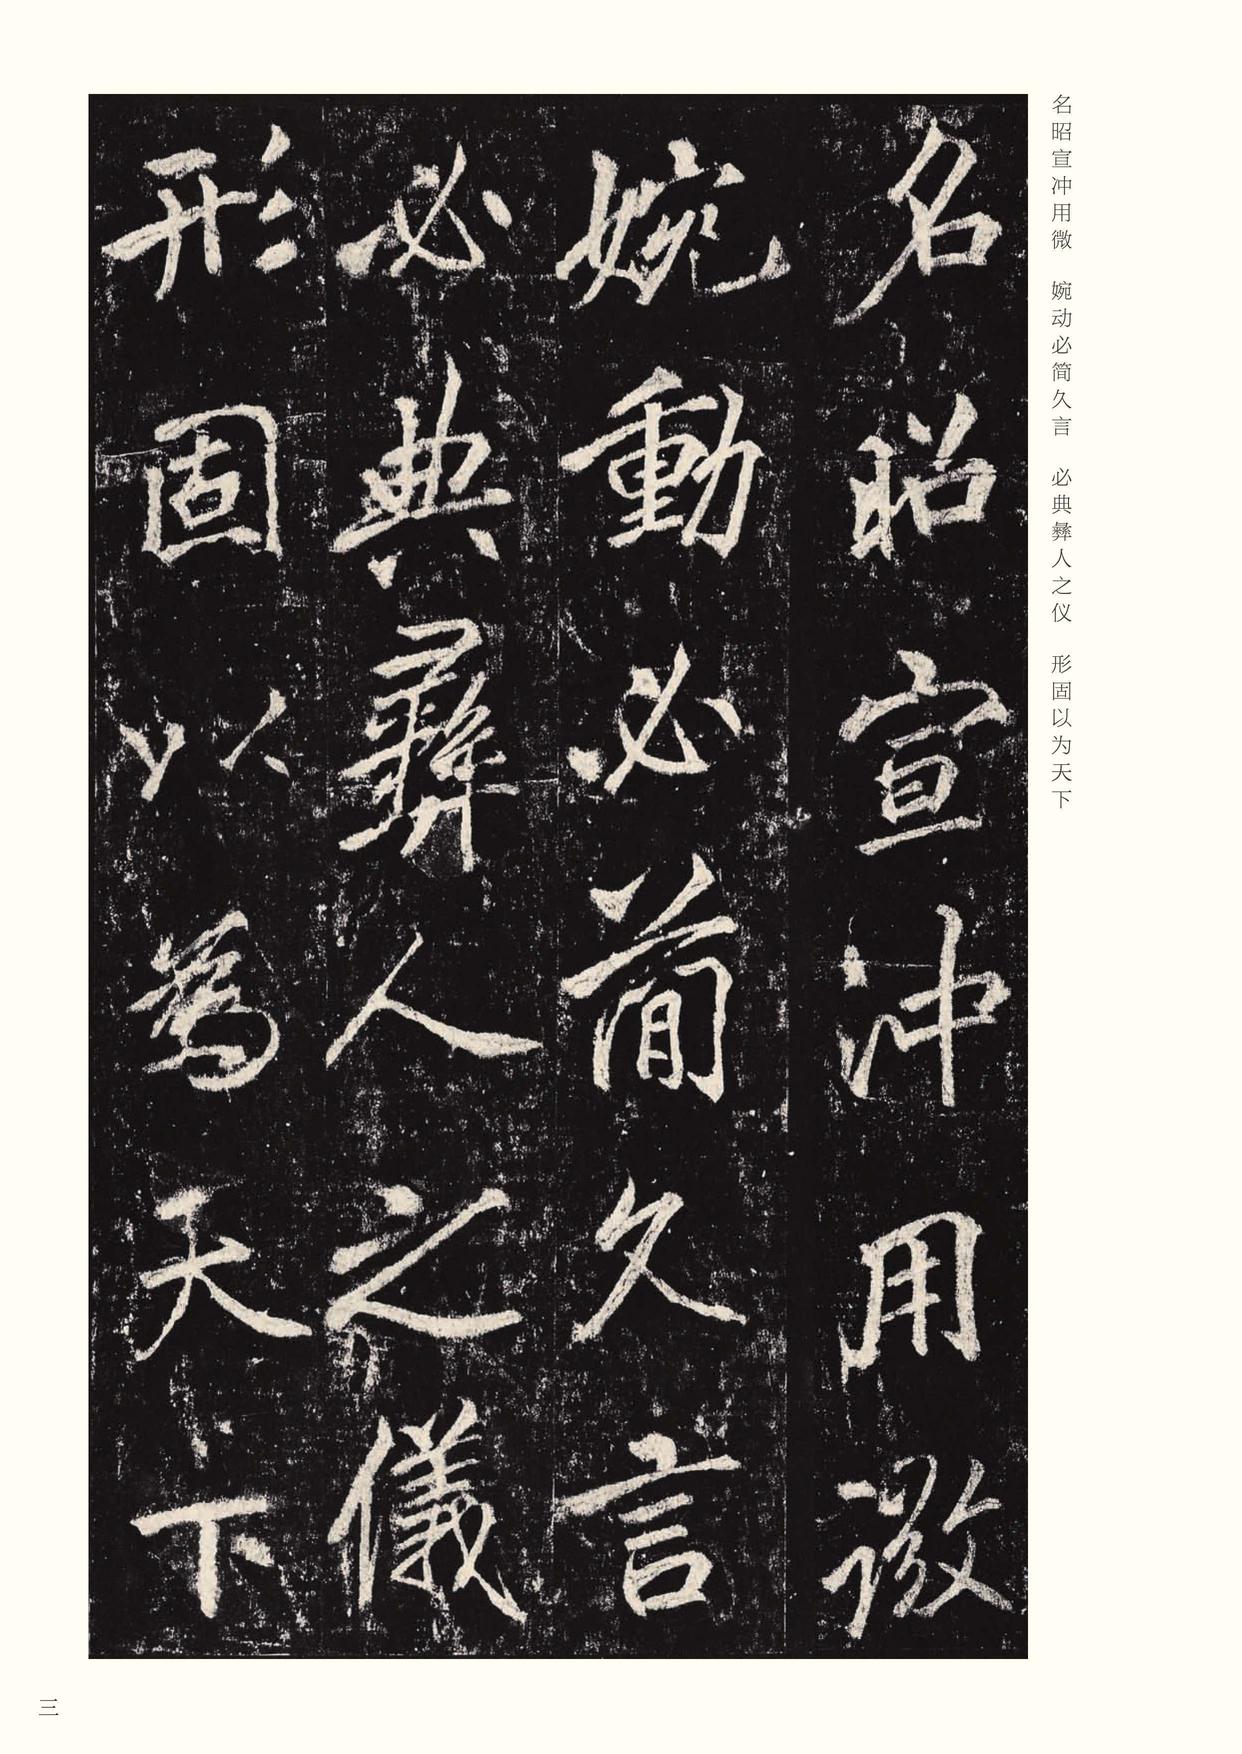 名昭宣冲用微　婉动必简久言　必典彝人之仪　形固以为天下
名昭宣沖用微
婉動必簡久言
必典彝人之儀
形固以為天下
三